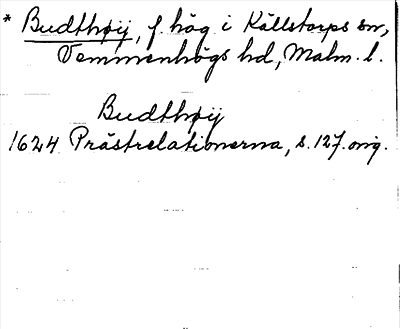 * Budthøÿ, f. hög i Källstorps sn,
Vemmenhögs hd, Malm. l.
Budthøÿ
1624 Prästrelationerna, s. 127. orig.